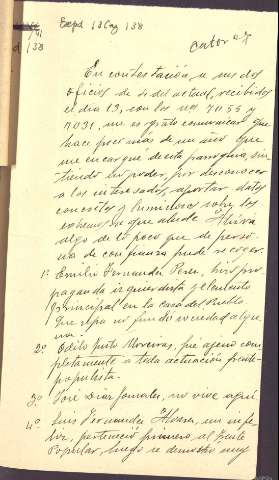 Exped 18 Cag 138
138
En contestación, a sus dos
oficios de 4 del actual, recibidos
el día 13, con los nos 7055 y
7031, me es grato comunicar que
hace poco más de un año que
me encargué de esta parroquia, sin
tiendo no poder, por desconocer
a los interesados, aportar datos
concretos y luminosos sobre los
extremos que alude. Ahí va
algo de lo poco que de perso
na de confianza pude recoger.
1º Emilio Fernandez Perez, hizo pro
paganda izquierdista y elemento
principal en la casa del Pueblo
Que sepa no fundó sociedad algu
na.
2º Edito Justo Moreiras, fue ajeno com
pletamente a toda actuación frente-
populista.
3º José Diaz Gonzalez, no vive aquí
4º Luis Fernandez Alvarez, un infe
liz, perteneció primero al Frente
Popular, luego se demostró muy